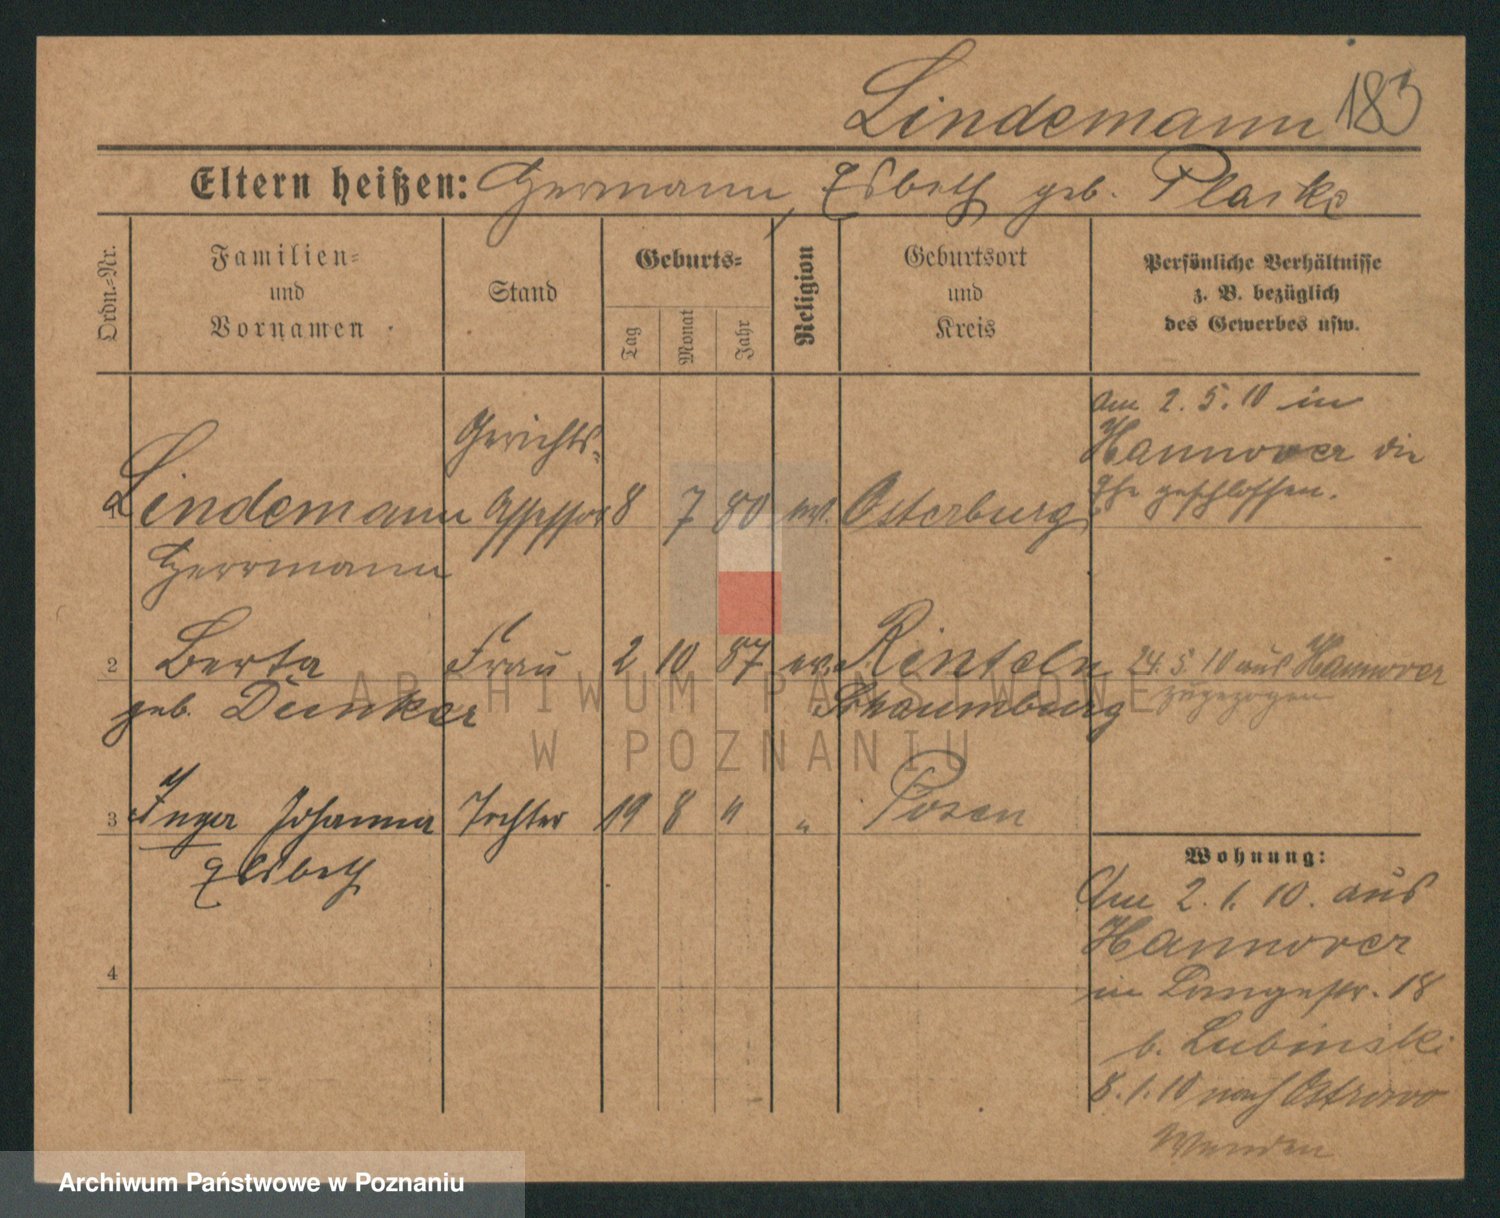 Lindemann 183
Eltern heißen: Hermann, Elsbeth geb. Plaske
Ordn.-Nr.
Familien-
und
Vornamen
Stand
Geburts-
Tag
Monat
Jahr
Religion
Geburtsort
und
Kreis
Persönliche Verhältnisse
z. B. bezüglich
des Gewerbes usw.
Gerichts-
1 Lindemann Assessor 8 7 80 ev. Osterburg
Herrmann
am 2. 5. 10 in
Hannover die
Ehe geschlossen.
2 Berta Frau 2 10 87 ev. Rinteln
geb. Dunker Schaumburg
24. 5. 10 aus Hannover
zugezogen
3 Inga Johanna Tochter 19 8 " " Posen
Elsbeth
4
Wohnung:
Am 2. 1. 10. aus
Hannover
in Langestr. 18
b. Lubinski
8. 1. 10 nach Ostrowo
ARCHIWUM PAŃSTWOWE
W POZNANIU
Archiwum Państwowe w Poznaniu